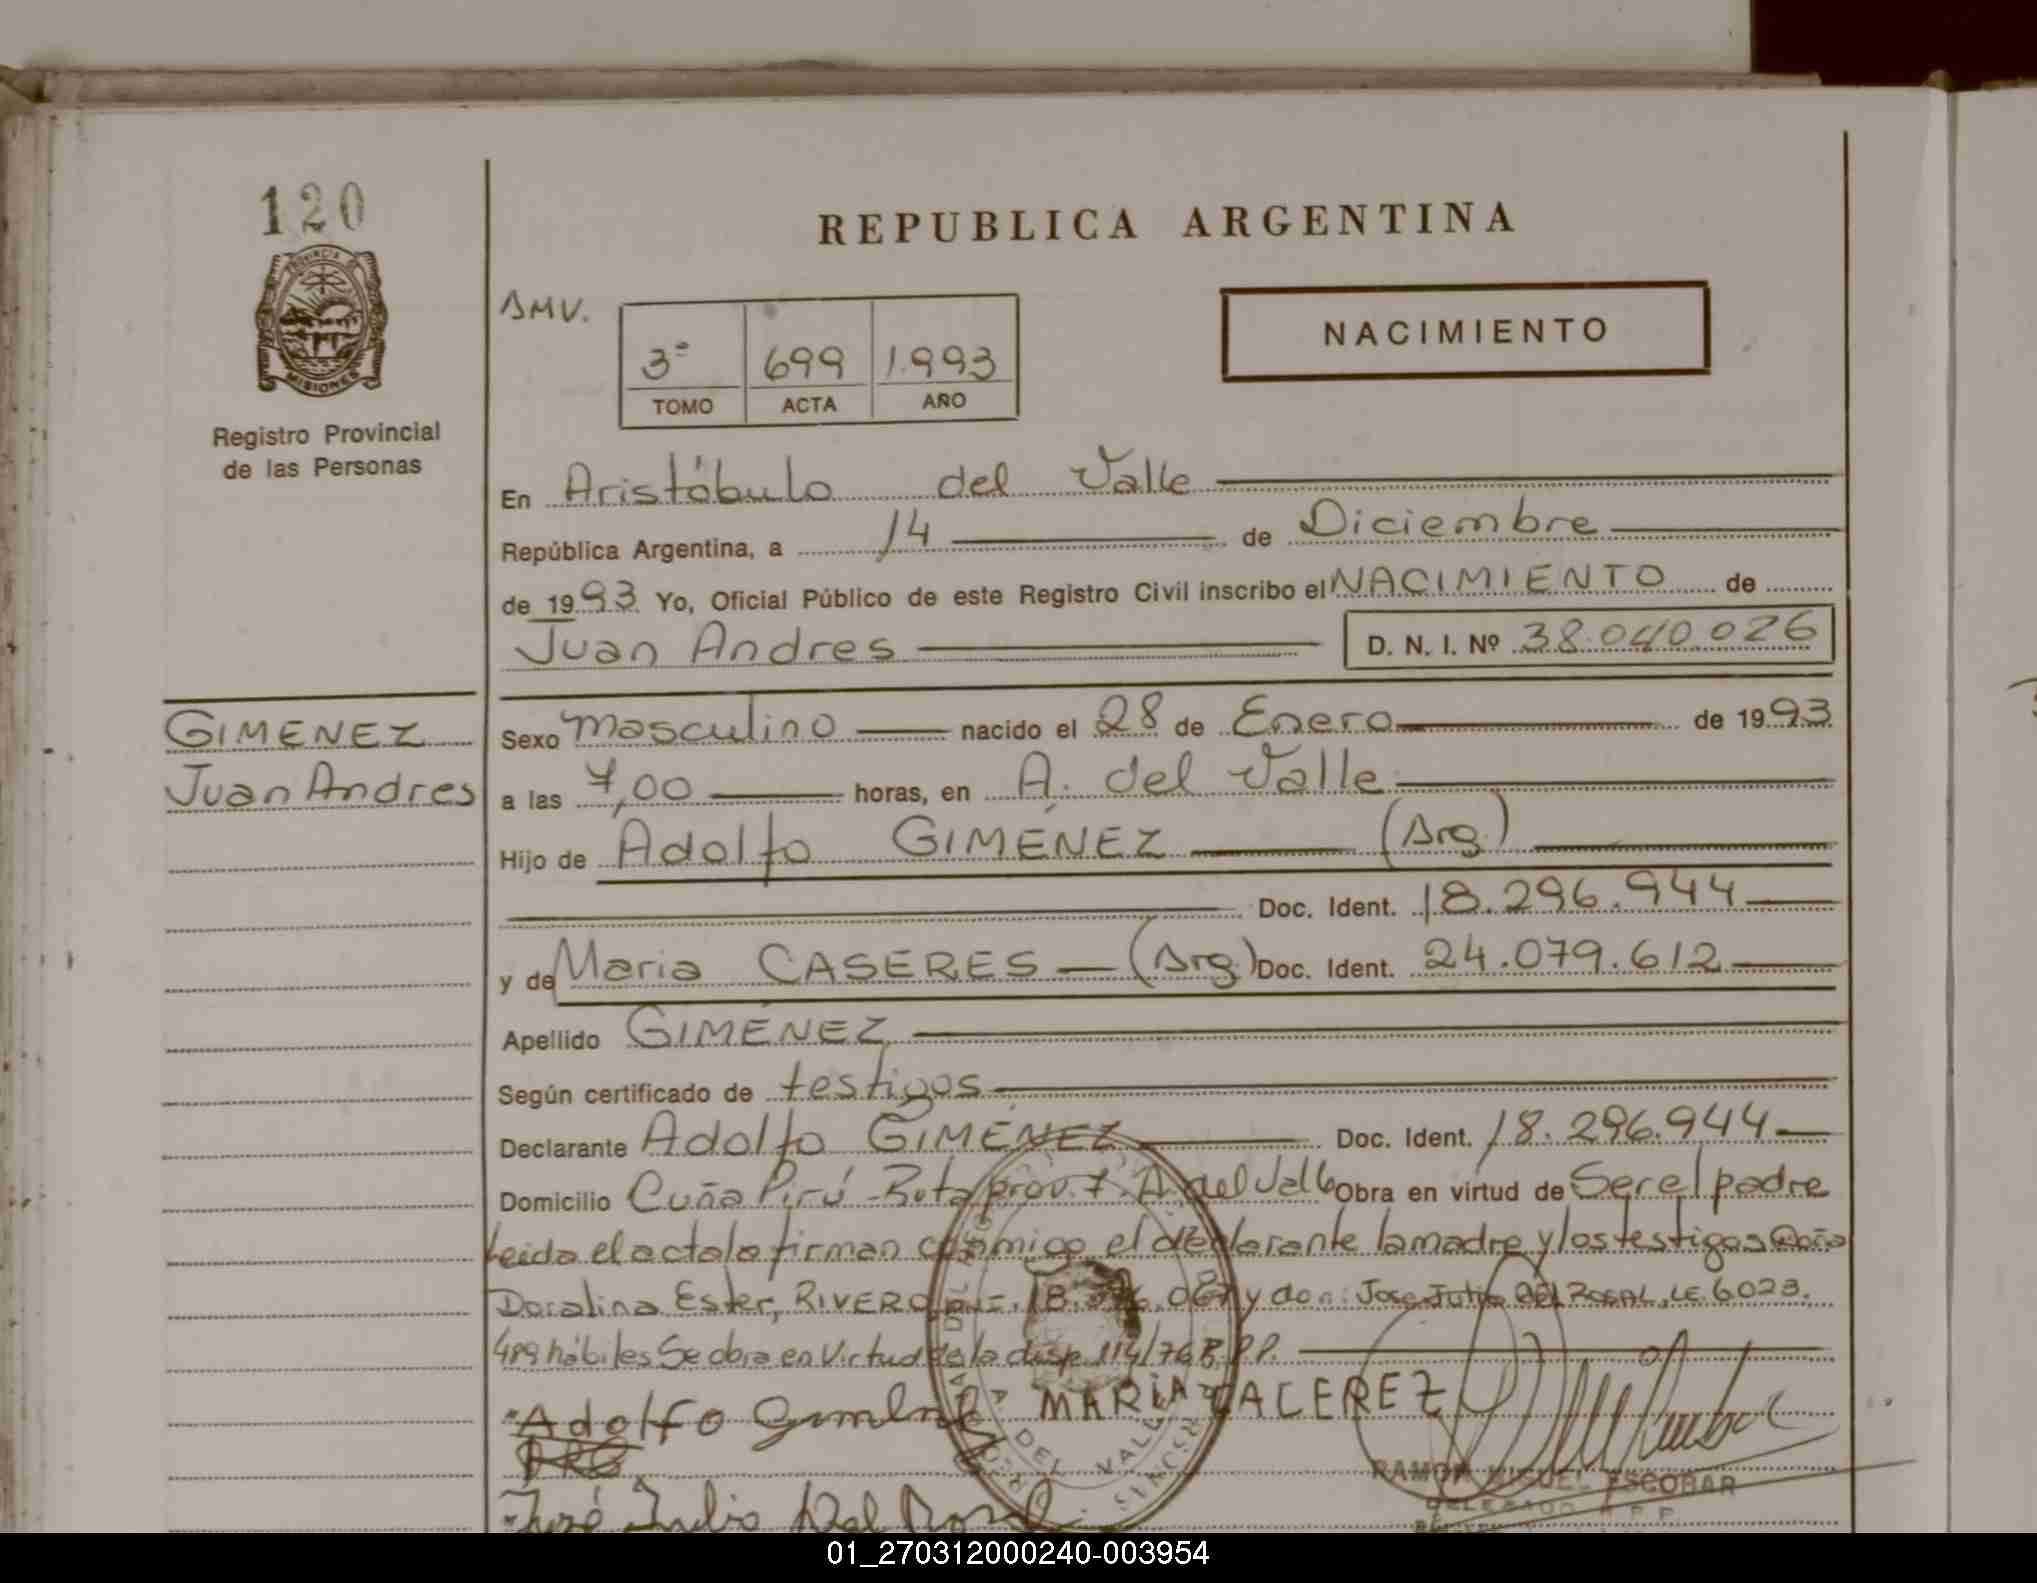 120
PROVINCIA DE
MISIONES
Registro Provincial
de las Personas
REPUBLICA ARGENTINA
NACIMIENTO
3º 699 1.993
TOMO ACTA AÑO
En Aristóbulo del Valle
República Argentina, a 14 de Diciembre
de 1993 Yo, Oficial Público de este Registro Civil inscribo el NACIMIENTO de
Juan Andres D. N. I. Nº 38.040.026
GIMENEZ
Juan Andres
Sexo Masculino nacido el 28 de Enero de 1993
a las 7,00 horas, en A. del Valle
Hijo de Adolfo GIMÉNEZ (Arg.)
Doc. Ident. 18.296.944
y de Maria CASERES (Arg.) Doc. Ident. 24.079.612
Apellido GIMÉNEZ
Según certificado de testigos
Declarante Adolfo GIMÉNEZ Doc. Ident. 18.296.944
Domicilio Cuña Pirú - Ruta prov. 7. A. del Valle Obra en virtud de Ser el padre
Leida el acta la firman conmigo el declarante la madre y los testigos Doña
Doralina Ester, RIVERO 18. 067 y don: Jose Julio DEL ROSAL, LE 6023.
489 hábiles Se obra en Virtud de la disp. 114/76 R.P.P.
Adolfo Gimenez MARIA CACEREZ
DEL VALLE
RAMON MIGUEL ESCOBAR
DELEGADO R.P.P.
José Julio Del Rosal
01_270312000240-003954